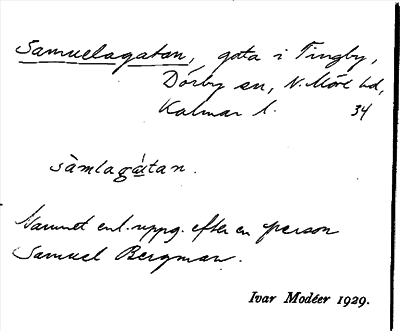 Samuelagatan, gata i Tingby,
Dörby sn, N. Möre hd,
Kalmar l. 34
sàmlagá̀tan.
Namnet enl. uppg. efter en person
Samuel Bergman.
Ivar Modéer 1929.